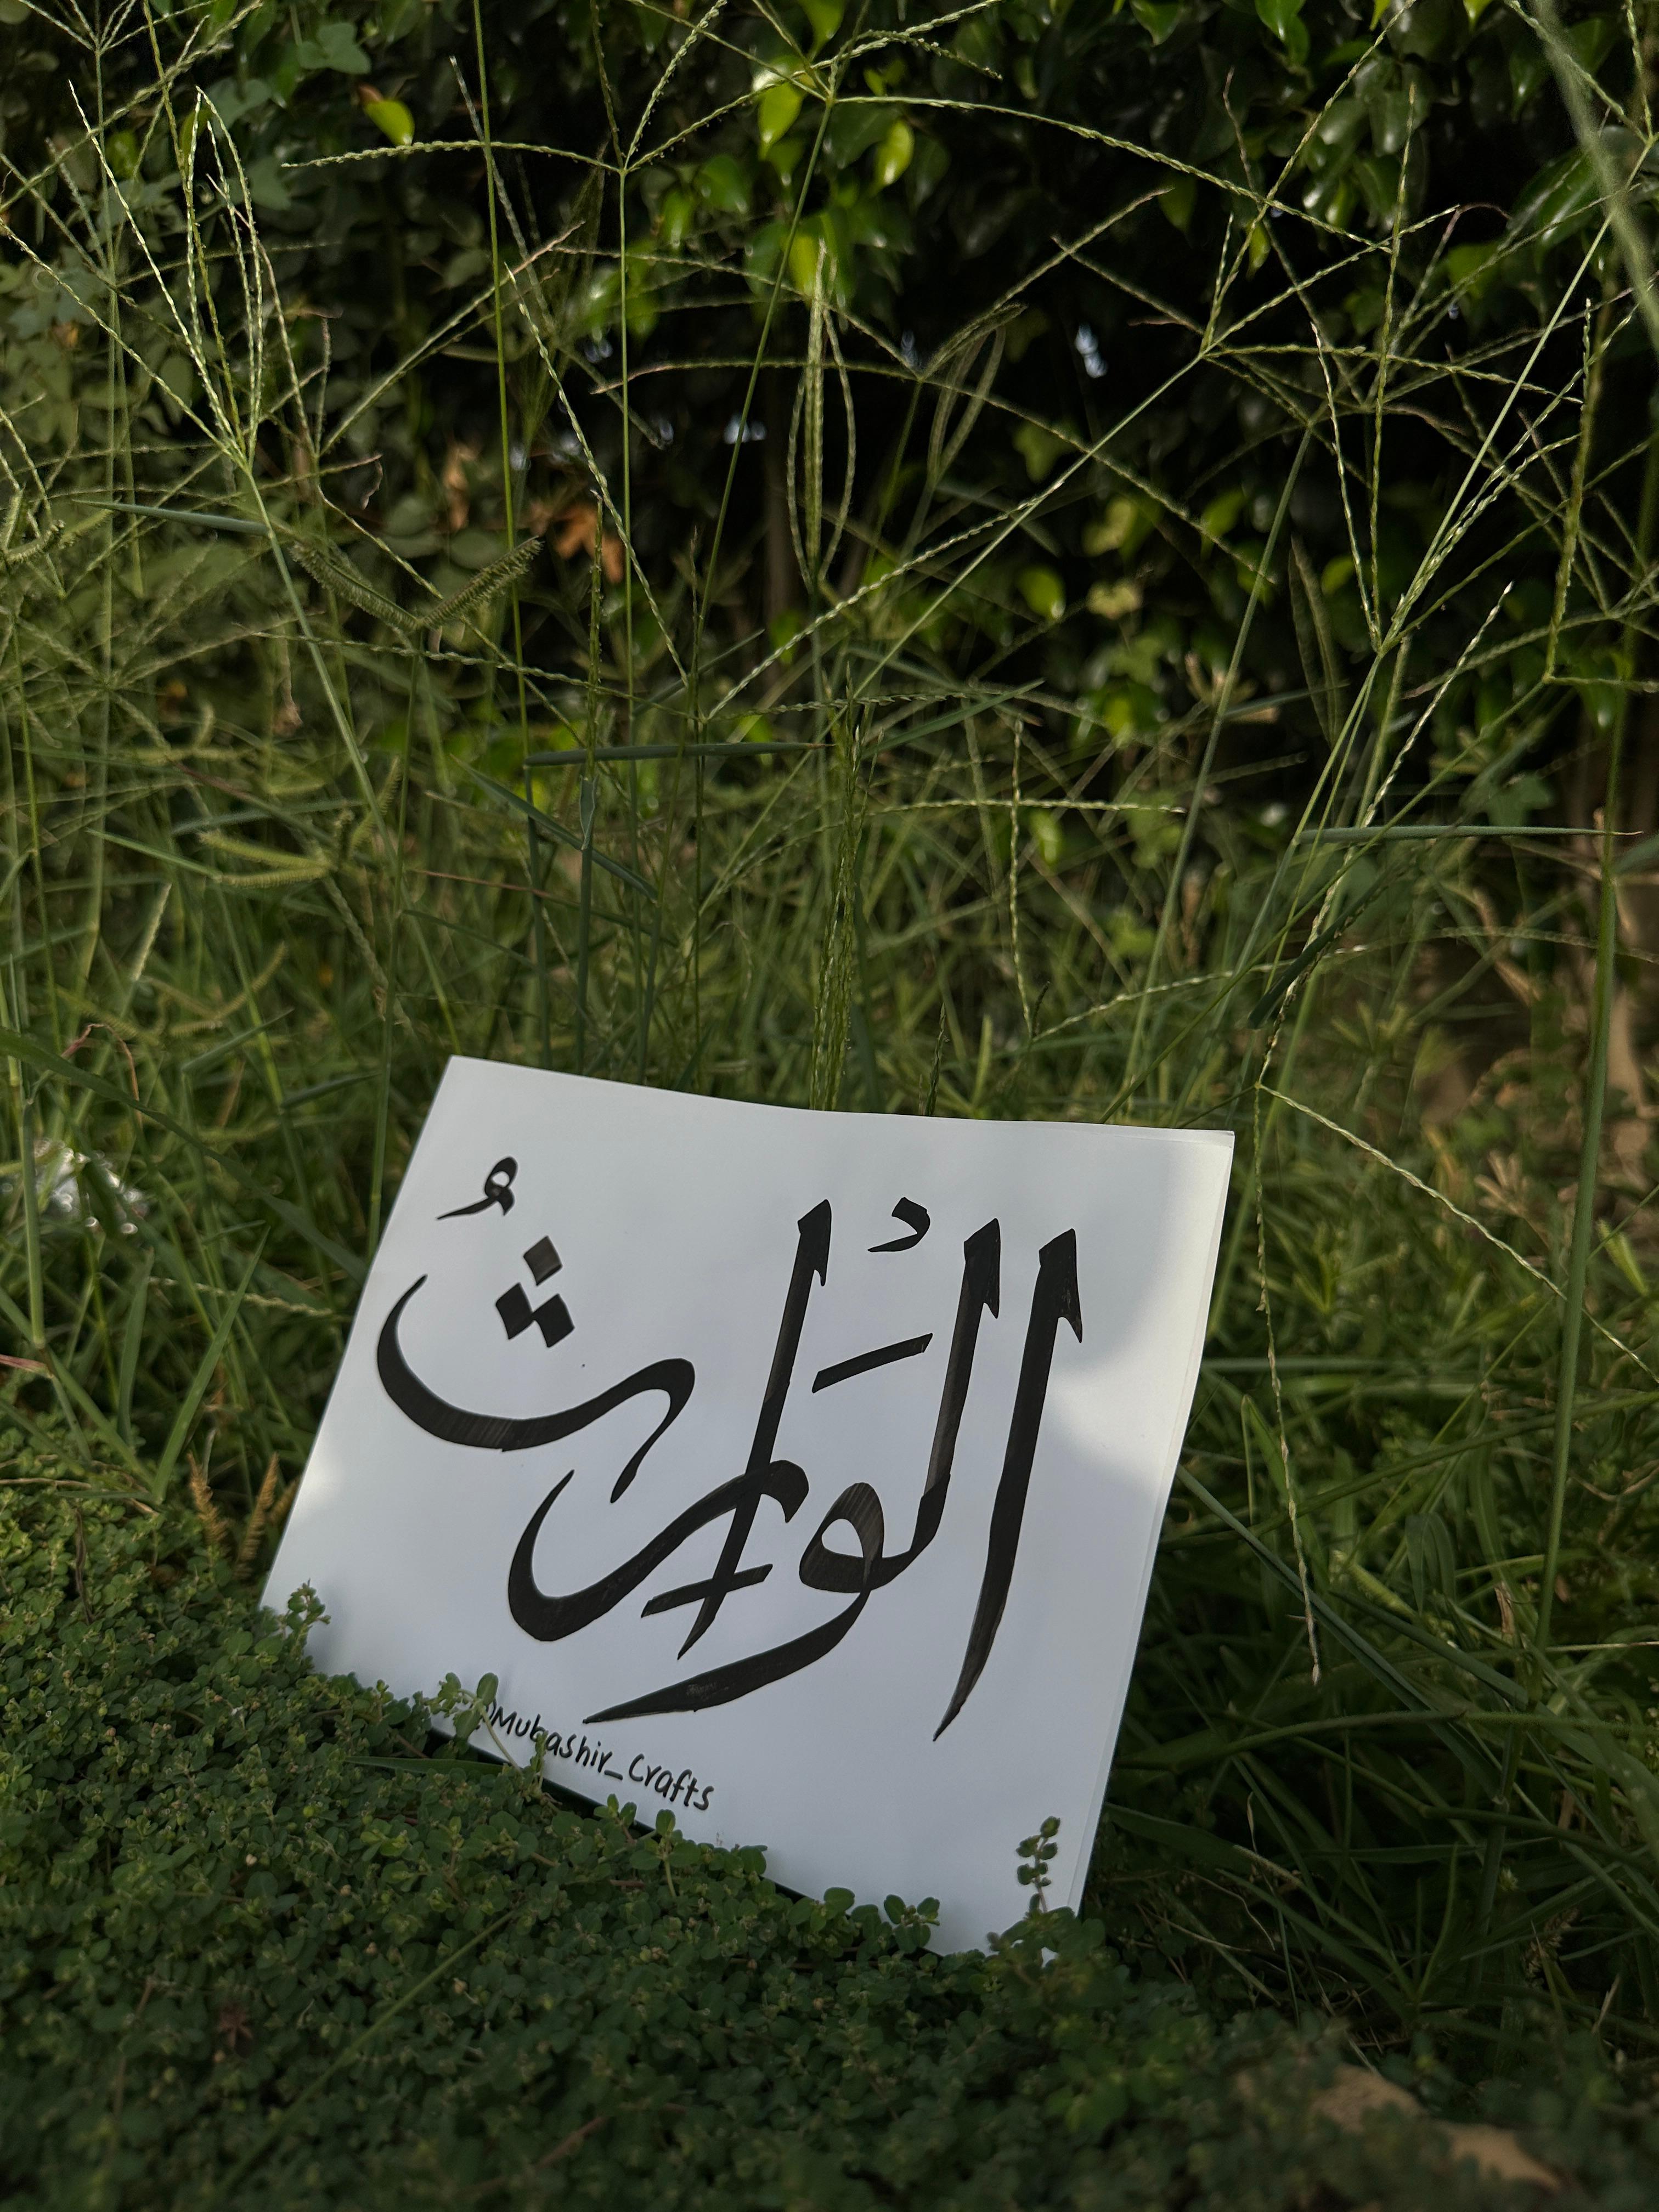 الْوَارِثُ
@Mubashir_Crafts